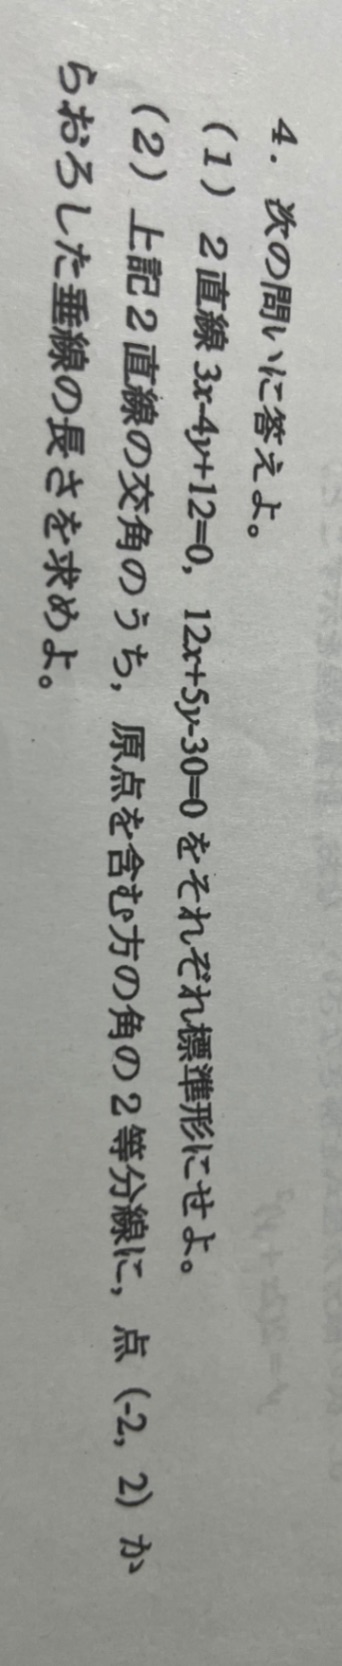 4. 次の問いに答えよ。
(1) 2直線 3x-4y+12=0, 12x+5y-30=0 をそれぞれ標準形にせよ。
(2) 上記2直線の交角のうち, 原点を含む方の角の2等分線に, 点 (-2, 2) か
らおろした垂線の長さを求めよ。